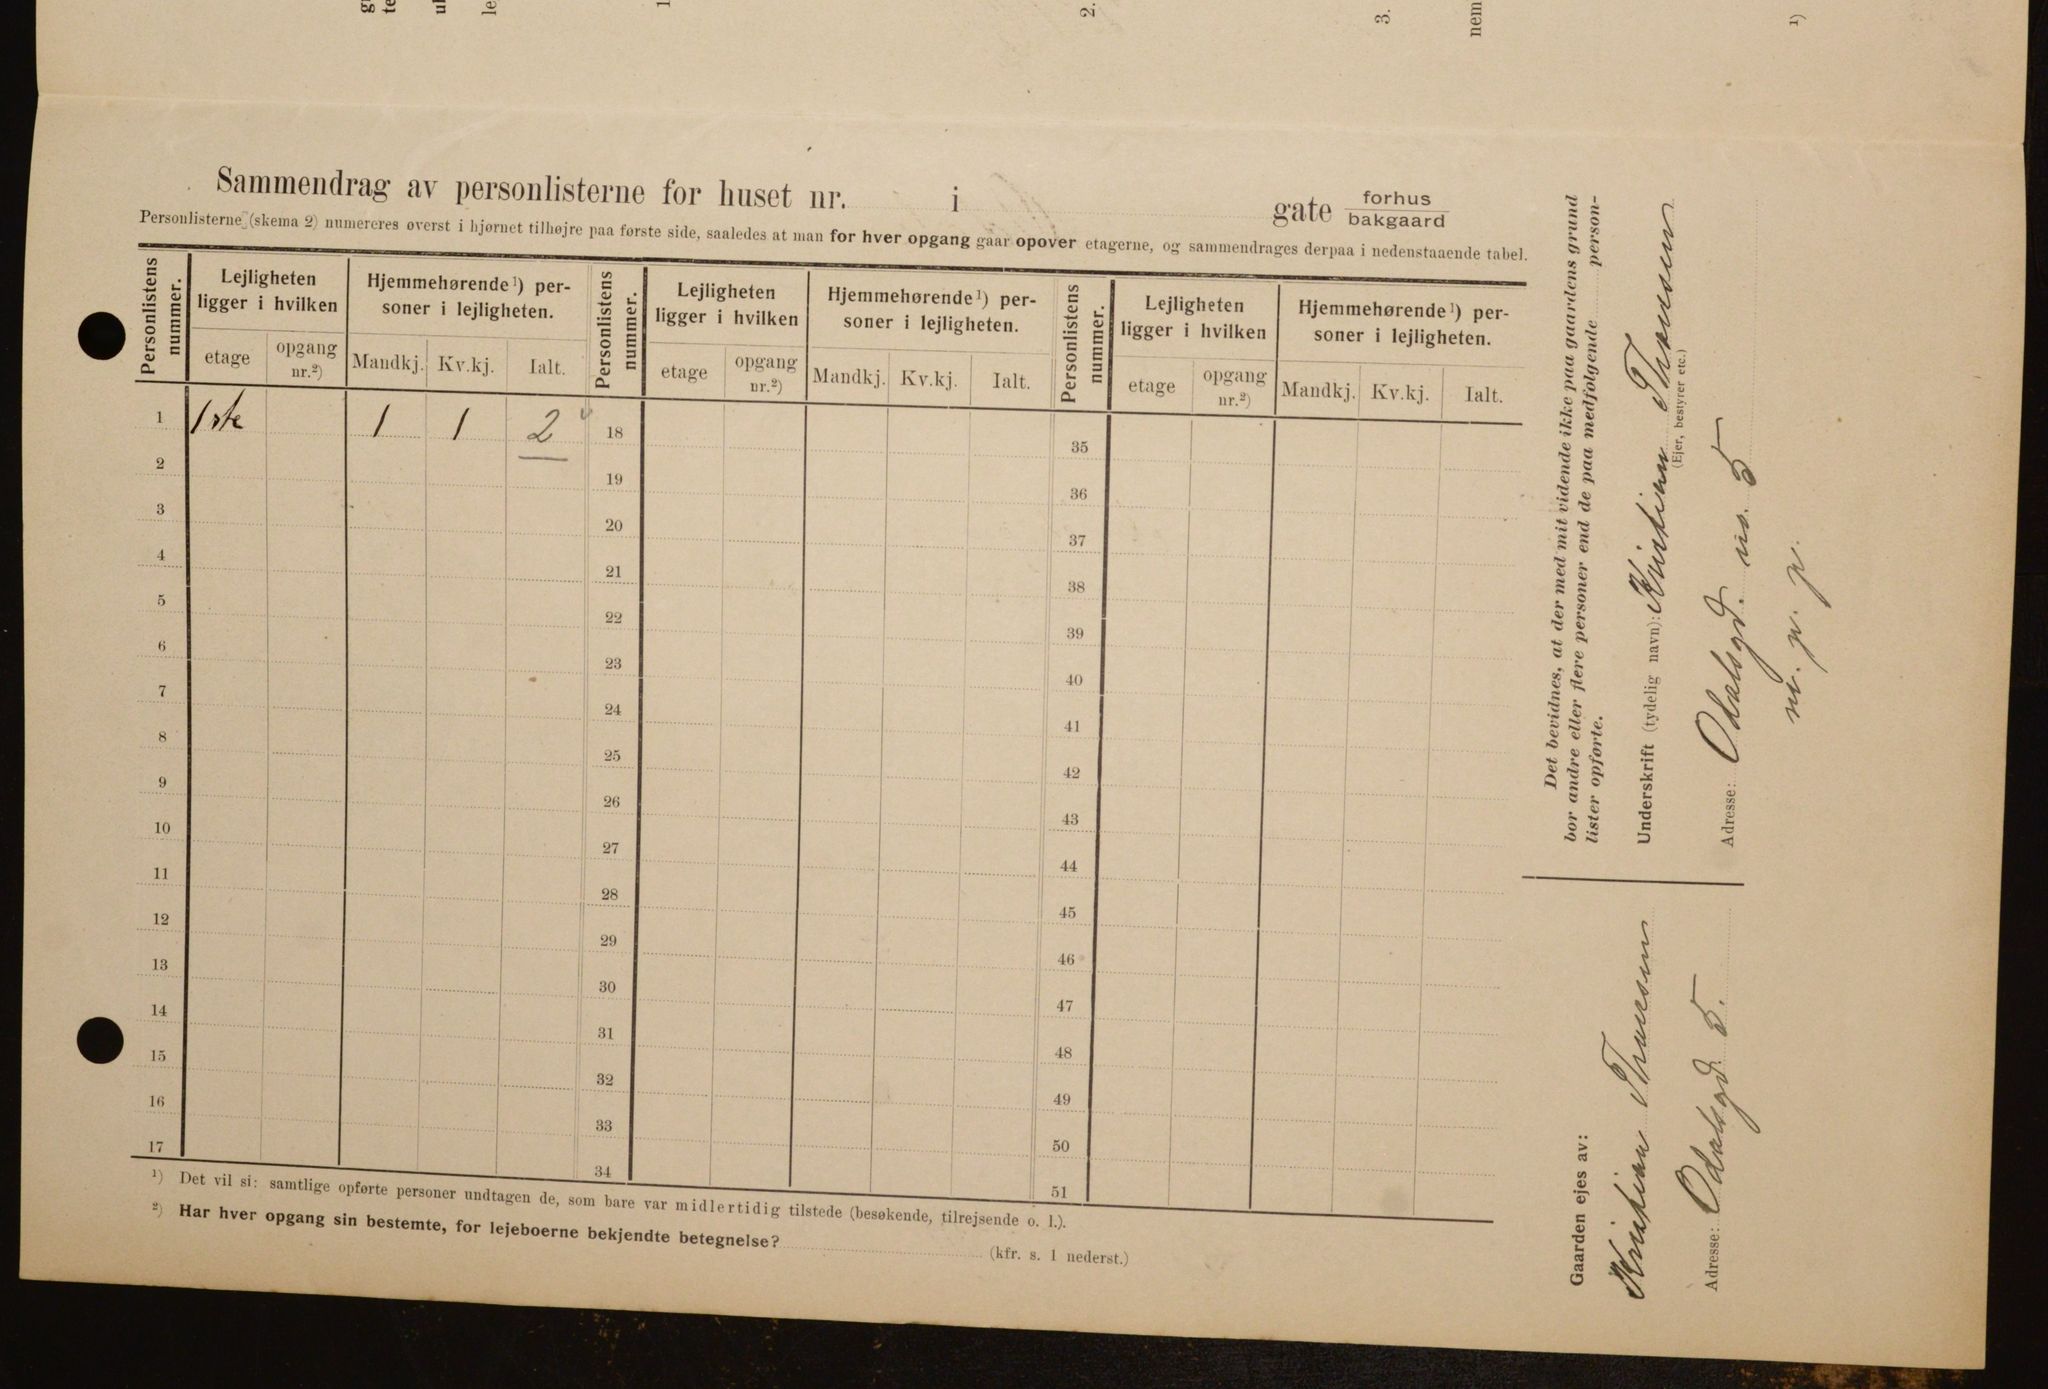 Sammendrag av personlisterne for huset nr. i gate forhus
bakgaard
Personlisterne (skema 2) numereres øverst i hjørnet tilhøjre paa første side, saaledes at man for hver opgang gaar opover etagerne, og sammendrages derpaa i nedenstaaende tabel.
Personlistens nummer. Lejligheten ligger i hvilken Hjemmehørende¹) personer i lejligheten. Personlistens nummer. Lejligheten ligger i hvilken Hjemmehørende¹) personer i lejligheten. Personlistens nummer. Lejligheten ligger i hvilken Hjemmehørende¹) personer i lejligheten.
etage opgang nr.²) Mandkj. Kv.kj. Ialt. etage opgang nr.²) Mandkj. Kv.kj. Ialt. etage opgang nr.²) Mandkj. Kv.kj. Ialt.
1 1ste 1 1 2 18 35
2 19 36
3 20 37
4 21 38
5 22 39
6 23 40
7 24 41
8 25 42
9 26 43
10 27 44
11 28 45
12 29 46
13 30 47
14 31 48
15 32 49
16 33 50
17 34 51
¹) Det vil si: samtlige opførte personer undtagen de, som bare var midlertidig tilstede (besøkende, tilrejsende o. l.).
²) Har hver opgang sin bestemte, for lejeboerne bekjendte betegnelse? (kfr. s. 1 nederst.)
Det bevidnes, at der med mit vidende ikke paa gaardens grund
bor andre eller flere personer end de paa medfølgende person-
lister opførte.
Underskrift (tydelig navn): Kristian
(Ejer, bestyrer etc.)
Adresse: Odalsgd. no. 5
Gaarden ejes av:
Kristian
Adresse: Odalsgd. 5.
1
2.
3.
nem
1)